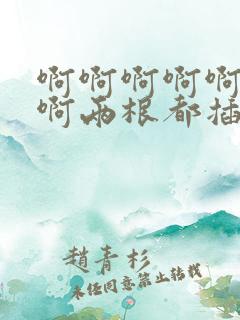 啊啊啊啊啊
啊两根都插
趙青杉
未任同意禁止轉載